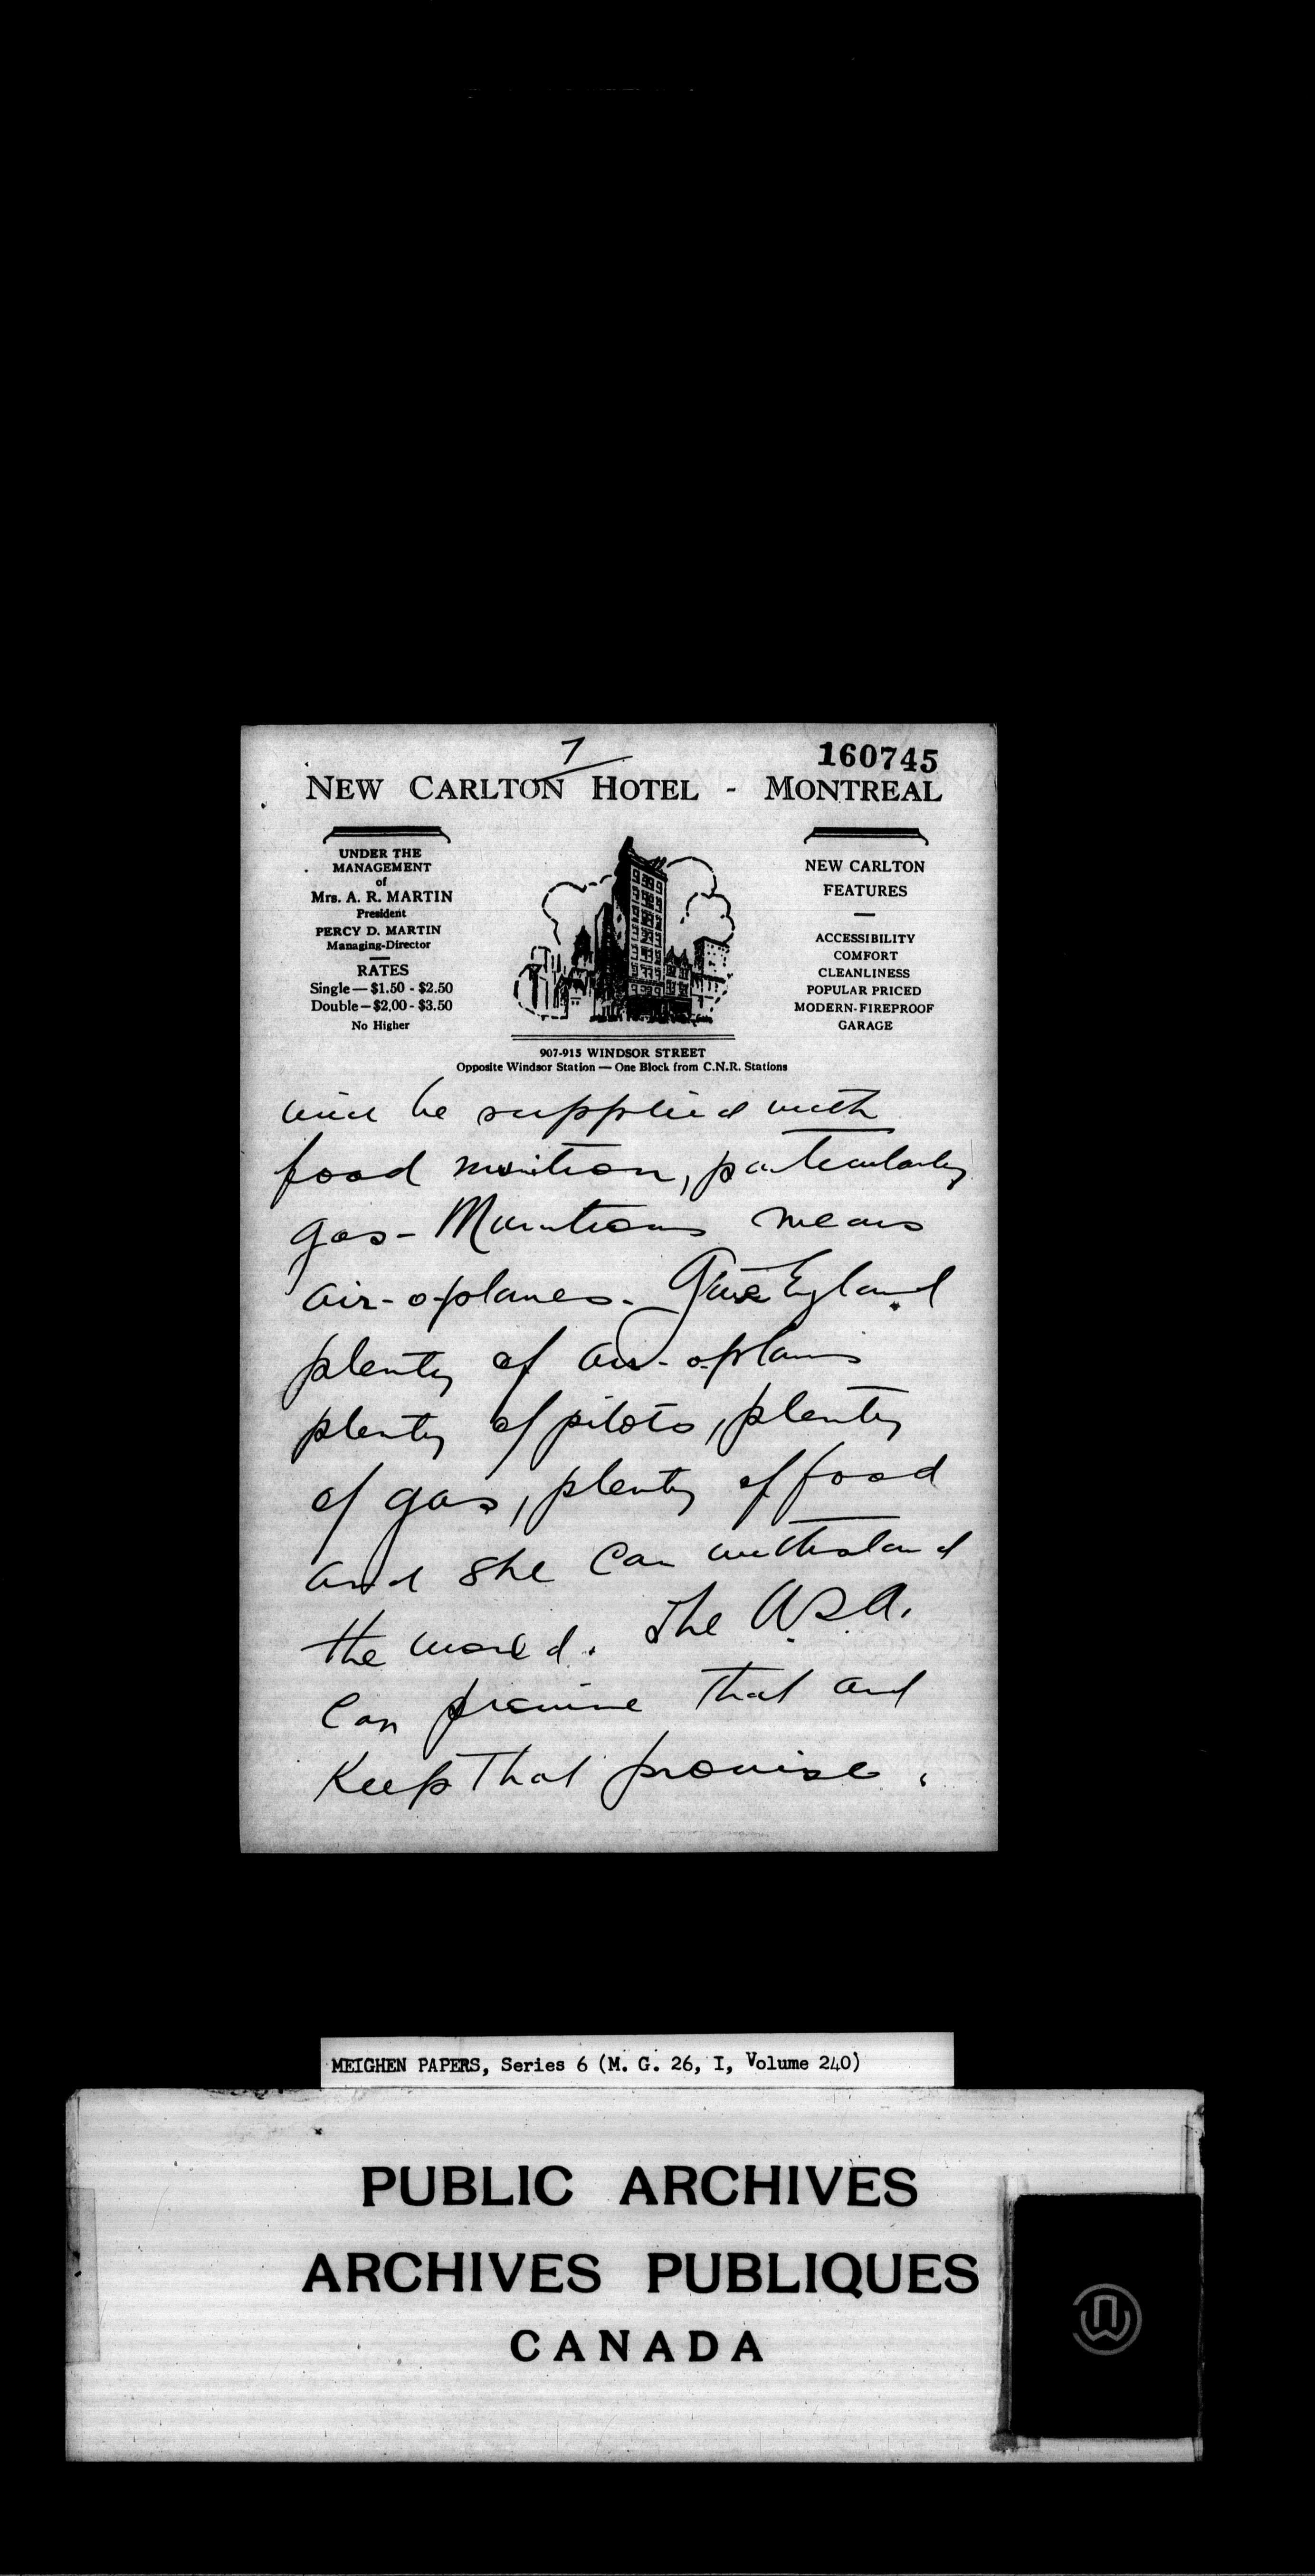 7
160745
NEW CARLTON HOTEL - MONTREAL
UNDER THE
MANAGEMENT
of
Mrs. A. R. MARTIN
President
PERCY D. MARTIN
Managing-Director
RATES
Single—$1.50 - $2.50
Double—$2.00 - $3.50
No Higher
NEW CARLTON
FEATURES
ACCESSIBILITY
COMFORT
CLEANLINESS
POPULAR PRICED
MODERN-FIREPROOF
GARAGE
907-915 WINDSOR STREET
Opposite Windsor Station — One Block from C.N.R. Stations
will be supplied with
food munition, particularly
gas - Munitions means
air-oplanes. Give England
plenty of air-oplanes
plenty of pilots, plenty
of gas, plenty of food
and she can withstand
the world. The U.S.A.
can promise that and
Keep That promise.
MEIGHEN PAPERS, Series 6 (M. G. 26, I, Volume 240)
PUBLIC ARCHIVES
ARCHIVES PUBLIQUES
CANADA